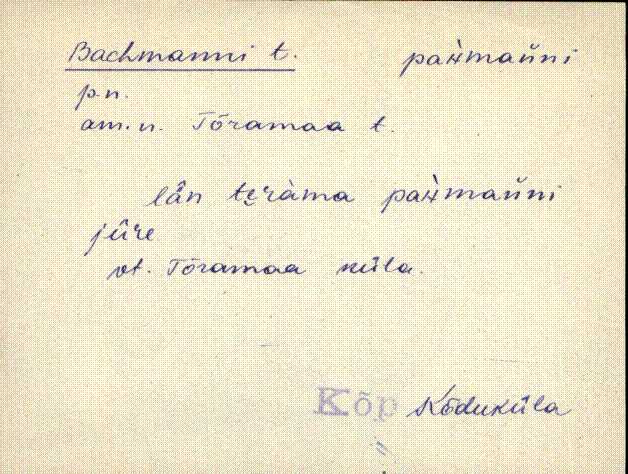 Bachmanni t. paximaǹni
p.n.
am. n. Tõramaa t.
län teràma paximaǹni
jüre
vt. Tõramaa küla.
Kõp Kõduküla